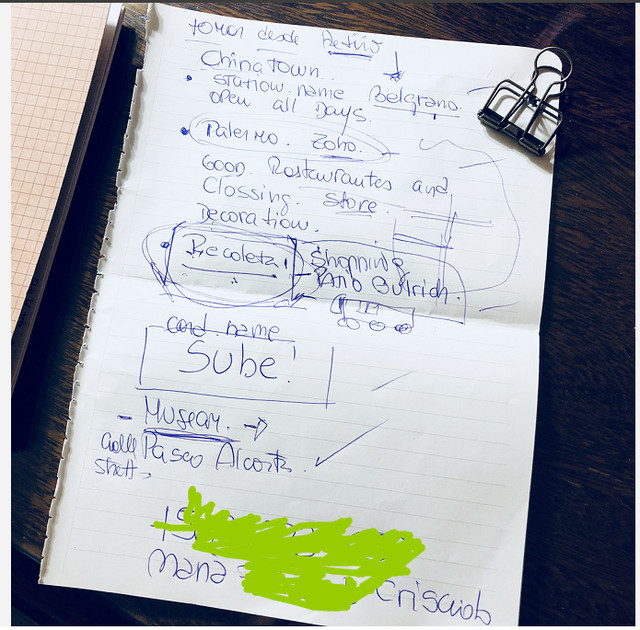 tomar desde Retiro
China town.
• station name Belgrano.
open all Days.
• Palermo. Zoho.
Good. Restaurantes and
Clossing. store.
Decoration.
• Recoleta! Shopping
Patio Bullrich.
card name
Sube!
- Museam. →
calle Paseo Alcorta.
Maria